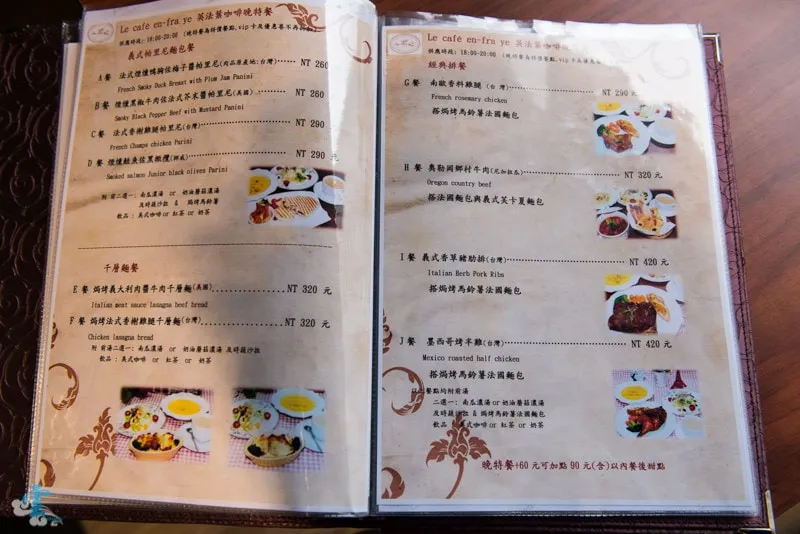 Le café en-fra ye 英法葉咖啡晚特餐
供應時段: 18:00-20:00 (晚特餐為特價餐點,vip卡友優惠恕不再折
義式帕里尼麵包餐
A餐 法式煙燻鴨胸佐梅子醬帕里尼(肉品原產地:台灣) NT 260
French Smoky Duck Breast with Plum Jam Panini
B餐 煙燻黑椒牛肉佐法式芥末醬帕里尼(美國) NT 260
Smoky Black Pepper Beef with Mustard Panini
C餐 法式香榭雞腿帕里尼(台灣) NT 290
French Champs chicken Panini
D餐 煙燻鮭魚佐黑橄欖(挪威) NT 290 元
Smoked salmon Junior black olives Panini
附前湯二選一: 南瓜濃湯 or 奶油蘑菇濃湯
及時蔬沙拉 & 焗烤馬鈴薯
飲品: 美式咖啡 or 紅茶 or 奶茶
千層麵餐
E餐 焗烤義大利肉醬牛肉千層麵(美國) NT 320 元
Italian meat sauce lasagna beef bread
F餐 焗烤法式香榭雞腿千層麵(台灣) NT 320 元
Chicken lasagna bread
附前湯二選一: 南瓜濃湯 or 奶油蘑菇濃湯 及時蔬沙拉
飲品: 美式咖啡 or 紅茶 or 奶茶
Le café en-fra ye 英法葉咖啡
供應時段: 18:00-20:00 (晚特餐為特價餐點,vip卡友優惠
經典排餐
G餐 南歐香料雞腿 (台灣) NT 290 元
French rosemary chicken
搭焗烤馬鈴薯法國麵包
H餐 奧勒岡鄉村牛肉(尼加拉瓜) NT 320 元
Oregon country beef
搭法國麵包與義式芙卡夏麵包
I餐 義式香草豬肋排(台灣) NT 420 元
Italian Herb Pork Ribs
搭焗烤馬鈴薯法國麵包
J餐 墨西哥烤半雞(台灣) NT 420 元
Mexico roasted half chicken
搭焗烤馬鈴薯法國麵包
以上餐點均附前湯
二選一: 南瓜濃湯 or 奶油蘑菇濃湯
及時蔬沙拉 & 焗烤馬鈴薯法國麵包
飲品: 美式咖啡 or 紅茶 or 奶茶
晚特餐+60元可加點90元(含)以內餐後甜點